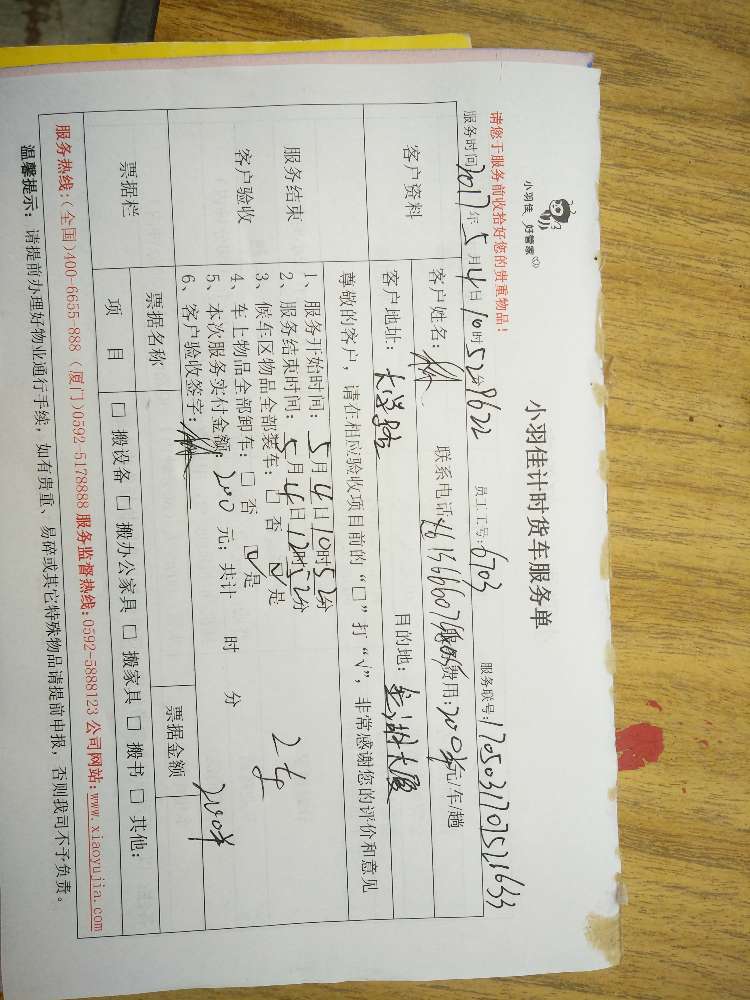 小羽佳 好管家
小羽佳计时货车服务单
请您于服务前收拾好您的贵重物品！
服务时间2017年5月4日10时52分 员工工号:6703 服务联号:1705031707521633
客户资料
客户姓名: 林 联系电话: 服务费用:200元/车/趟
客户地址: 目的地: 金湖大厦
尊敬的客户，请在相应验收项目前的“□”打“√”，非常感谢您的评价和意见
服务结束
客户验收
1、服务开始时间: 5月4日10时52分
2、服务结束时间: 5月4日12时52分
3、候车区物品全部装车: □否 ☑是
4、车上物品全部卸车: □否 ☑是
5、本次服务实付金额: 200元; 共计 时 分
6、客户验收签字: 林
票据栏 票据名称 票据金额
200
项目 □搬设备 □搬办公家具 □搬家具 □搬书 □其他:
服务热线:(全国)400-6655-888 (厦门)0592-5178888 服务监督热线:0592-5888123 公司网站:www.xiaoyujia.com
温馨提示: 请提前办理好物业通行手续，如有贵重、易碎或其它特殊物品请提前申报，否则我司不予负责。